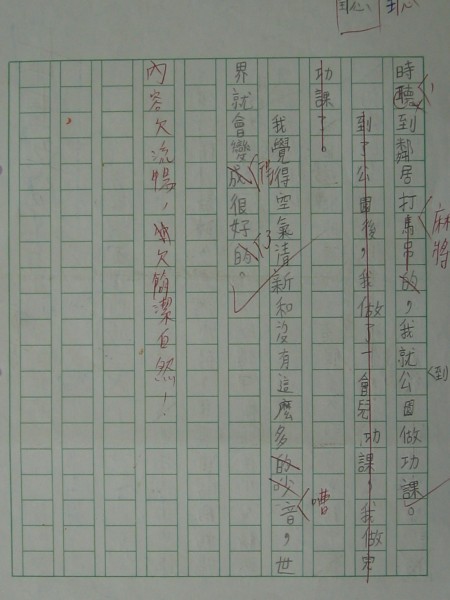 聽
時聽到鄰居打馬串的，我就公園做功課。
麻將
到
到了公園後，我做了一會兒功課，我做完
功課了。
我覺得空氣清新和沒有這麼多的吵音，世
嘈
界就會變成很好的。
得
了
內容欠流暢，欠簡潔自然！